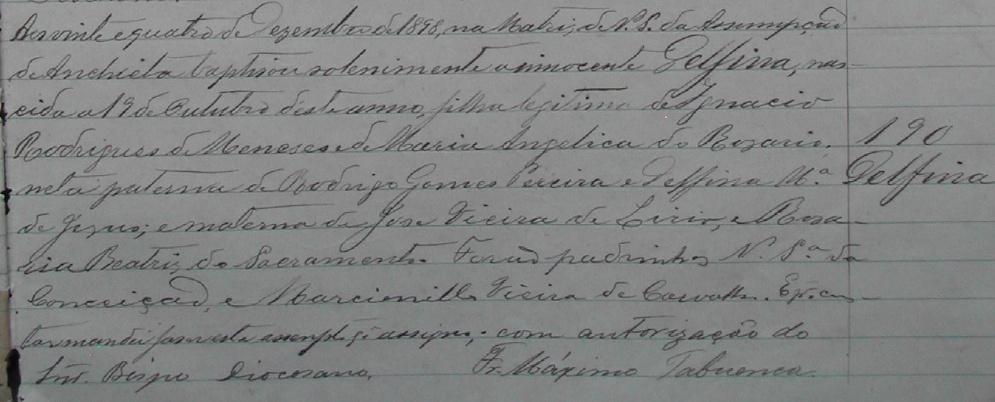 Aos vinte e quatro de Dezembro de 1898, na Matriz de N. S. da Assumpção
de Anchieta baptisou solenimente a innocente Delfina, nas-
cida a 19 de Outubro deste anno, filha legitima de Ignacio
Rodrigues de Meneses e de Maria Angelica do Rosario. 190
neta paterna de Rodrigo Gomes Pereira e Delfina Mª Delfina
de Jesus; e materna de José Vieira de Lirio, e Rosa-
ria Beatriz do Sacramento. Forão padrinhos N. Sª da
Conceição, e Marcionillo Vieira de Carvalho. E p. cons-
tar mandei fazer este assigno; com autorização do
Snr. Bispo Diocesano. Fr. Máximo Tabuenca.